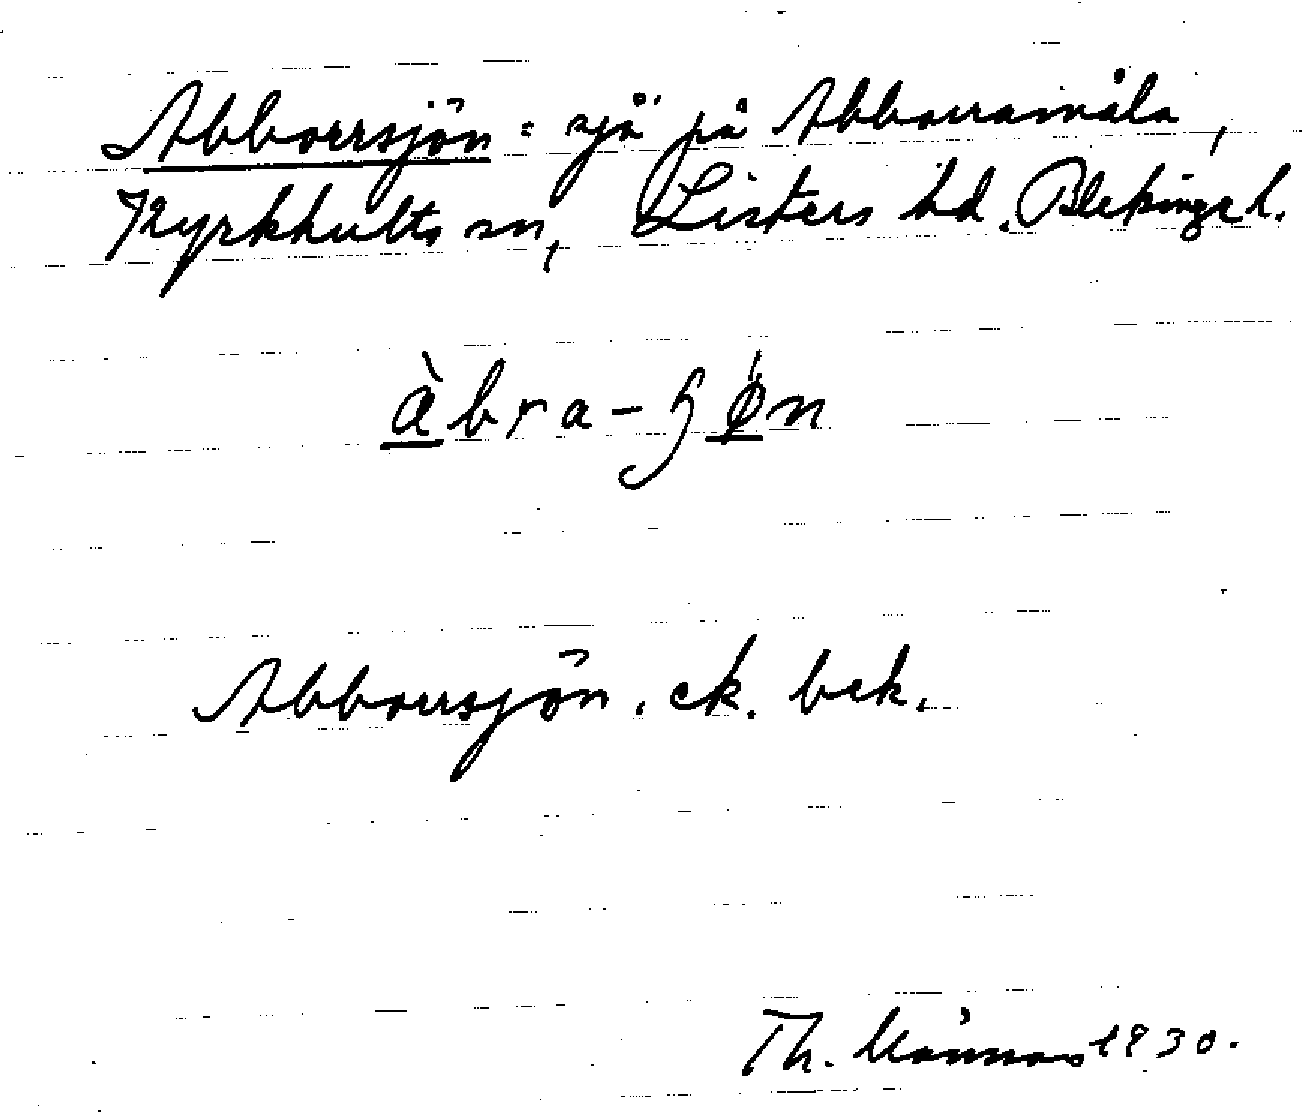 Abborrsjön = sjö på Abborramåla,
Kyrkhults sn, Listers hd. Blekinge l.
àbra-ʃǿn
Abborrsjön. ek. bek.
Th. 1930.